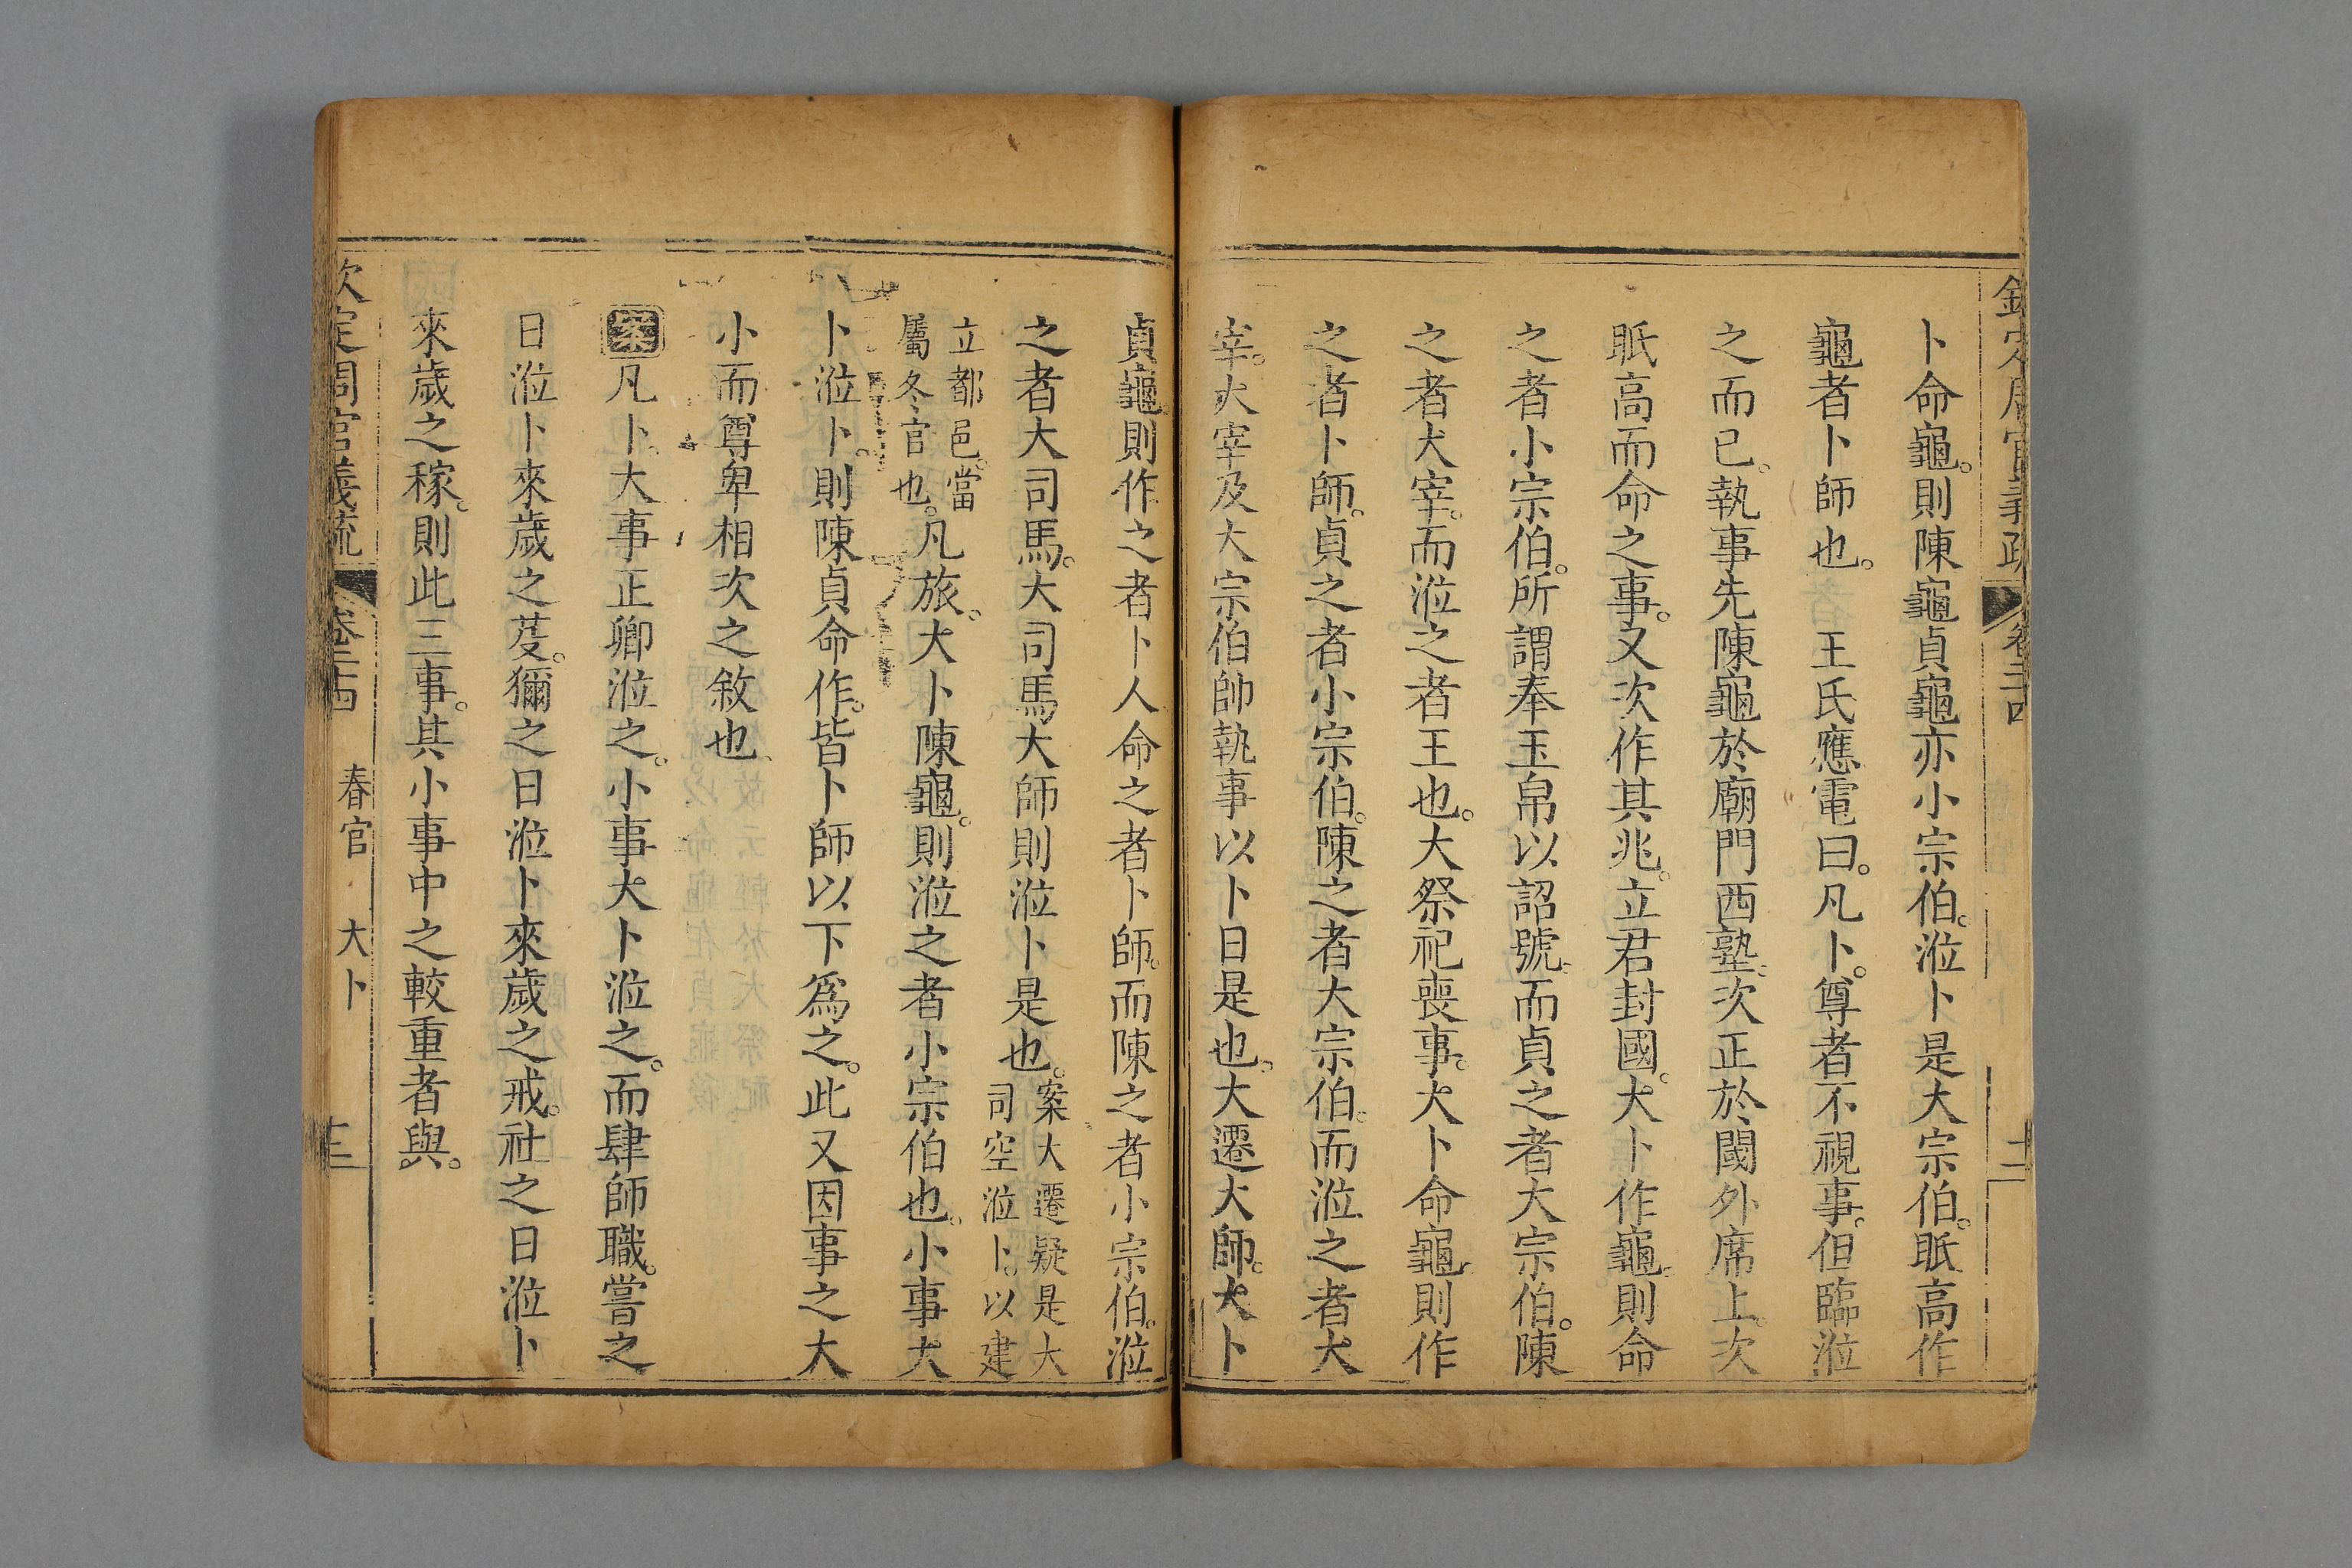 欽定周官義疏 卷二四 十二
卜命龜。則陳龜貞龜亦小宗伯。涖卜是大宗伯。眡高作
龜者卜師也。 王氏應電曰。凡卜。尊者不視事。但臨涖
之而已。執事先陳龜於廟門西塾。次正於閾外席上。次
眡高而命之事。又次作其兆。立君封國。大卜作龜。則命
之者小宗伯。所謂奉玉帛以詔號。而貞之者大宗伯。陳
之者大宰。而涖之者王也。大祭祀喪事。大卜命龜。則作
之者卜師。貞之者小宗伯。陳之者大宗伯。而涖之者大
宰。大宰及大宗伯帥執事以卜日是也。大遷大師。大卜
貞龜。則作之者卜人命之者卜師。而陳之者小宗伯。涖
之者大司馬。大司馬大師則涖卜是也。案大遷疑是大
司空涖卜。以建
立都邑。當
屬冬官也。凡旅。大卜陳龜。則涖之者小宗伯也。小事大
卜涖卜。則陳貞命作。皆卜師以下爲之。此又因事之大
小而尊卑相次之敘也。
案凡卜。大事正卿涖之。小事大卜涖之。而肆師職。嘗之
日涖卜來歲之芟。獮之日涖卜來歲之戒。社之日涖卜
來歲之稼。則此三事。其小事中之較重者與。
欽定周官義疏 卷二十四 春官 大卜 十三